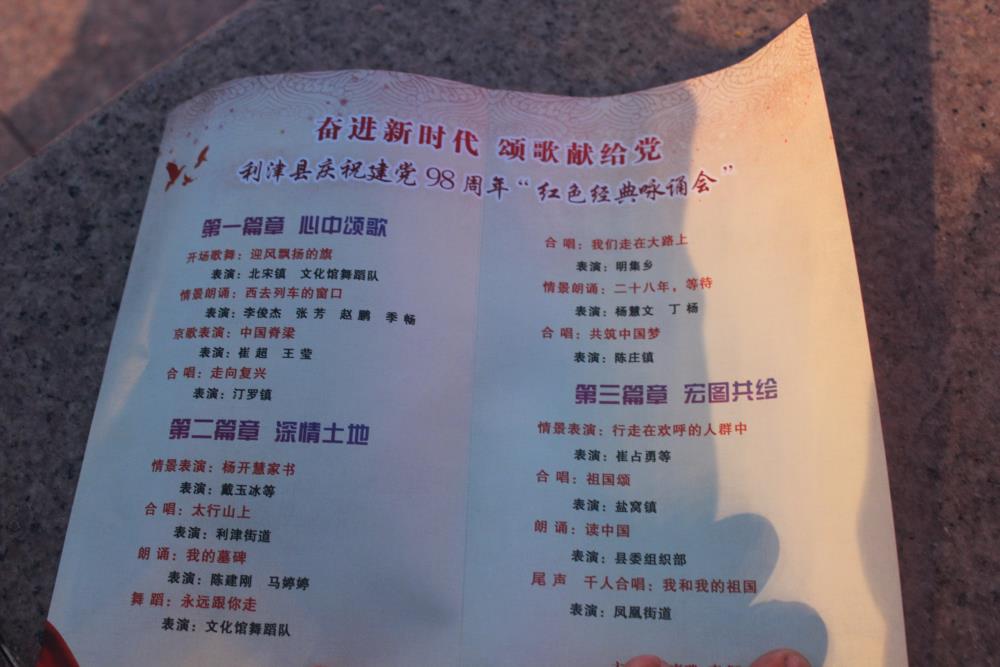 奋进新时代 颂歌献给党
利津县庆祝建党98周年“红色经典咏诵会”
第一篇章 心中颂歌
开场歌舞：迎风飘扬的旗
表演：北宋镇 文化馆舞蹈队
情景朗诵：西去列车的窗口
表演：李俊杰 张芳 赵鹏 季畅
京歌表演：中国脊梁
表演：崔超 王莹
合唱：走向复兴
表演：汀罗镇
第二篇章 深情土地
情景表演：杨开慧家书
表演：戴玉冰等
合唱：太行山上
表演：利津街道
朗诵：我的墓碑
表演：陈建刚 马婷婷
舞蹈：永远跟你走
表演：文化馆舞蹈队
合唱：我们走在大路上
表演：明集乡
情景朗诵：二十八年，等待
表演：杨慧文 丁杨
合唱：共筑中国梦
表演：陈庄镇
第三篇章 宏图共绘
情景表演：行走在欢呼的人群中
表演：崔占勇等
合唱：祖国颂
表演：盐窝镇
朗诵：读中国
表演：县委组织部
尾声 千人合唱：我和我的祖国
表演：凤凰街道